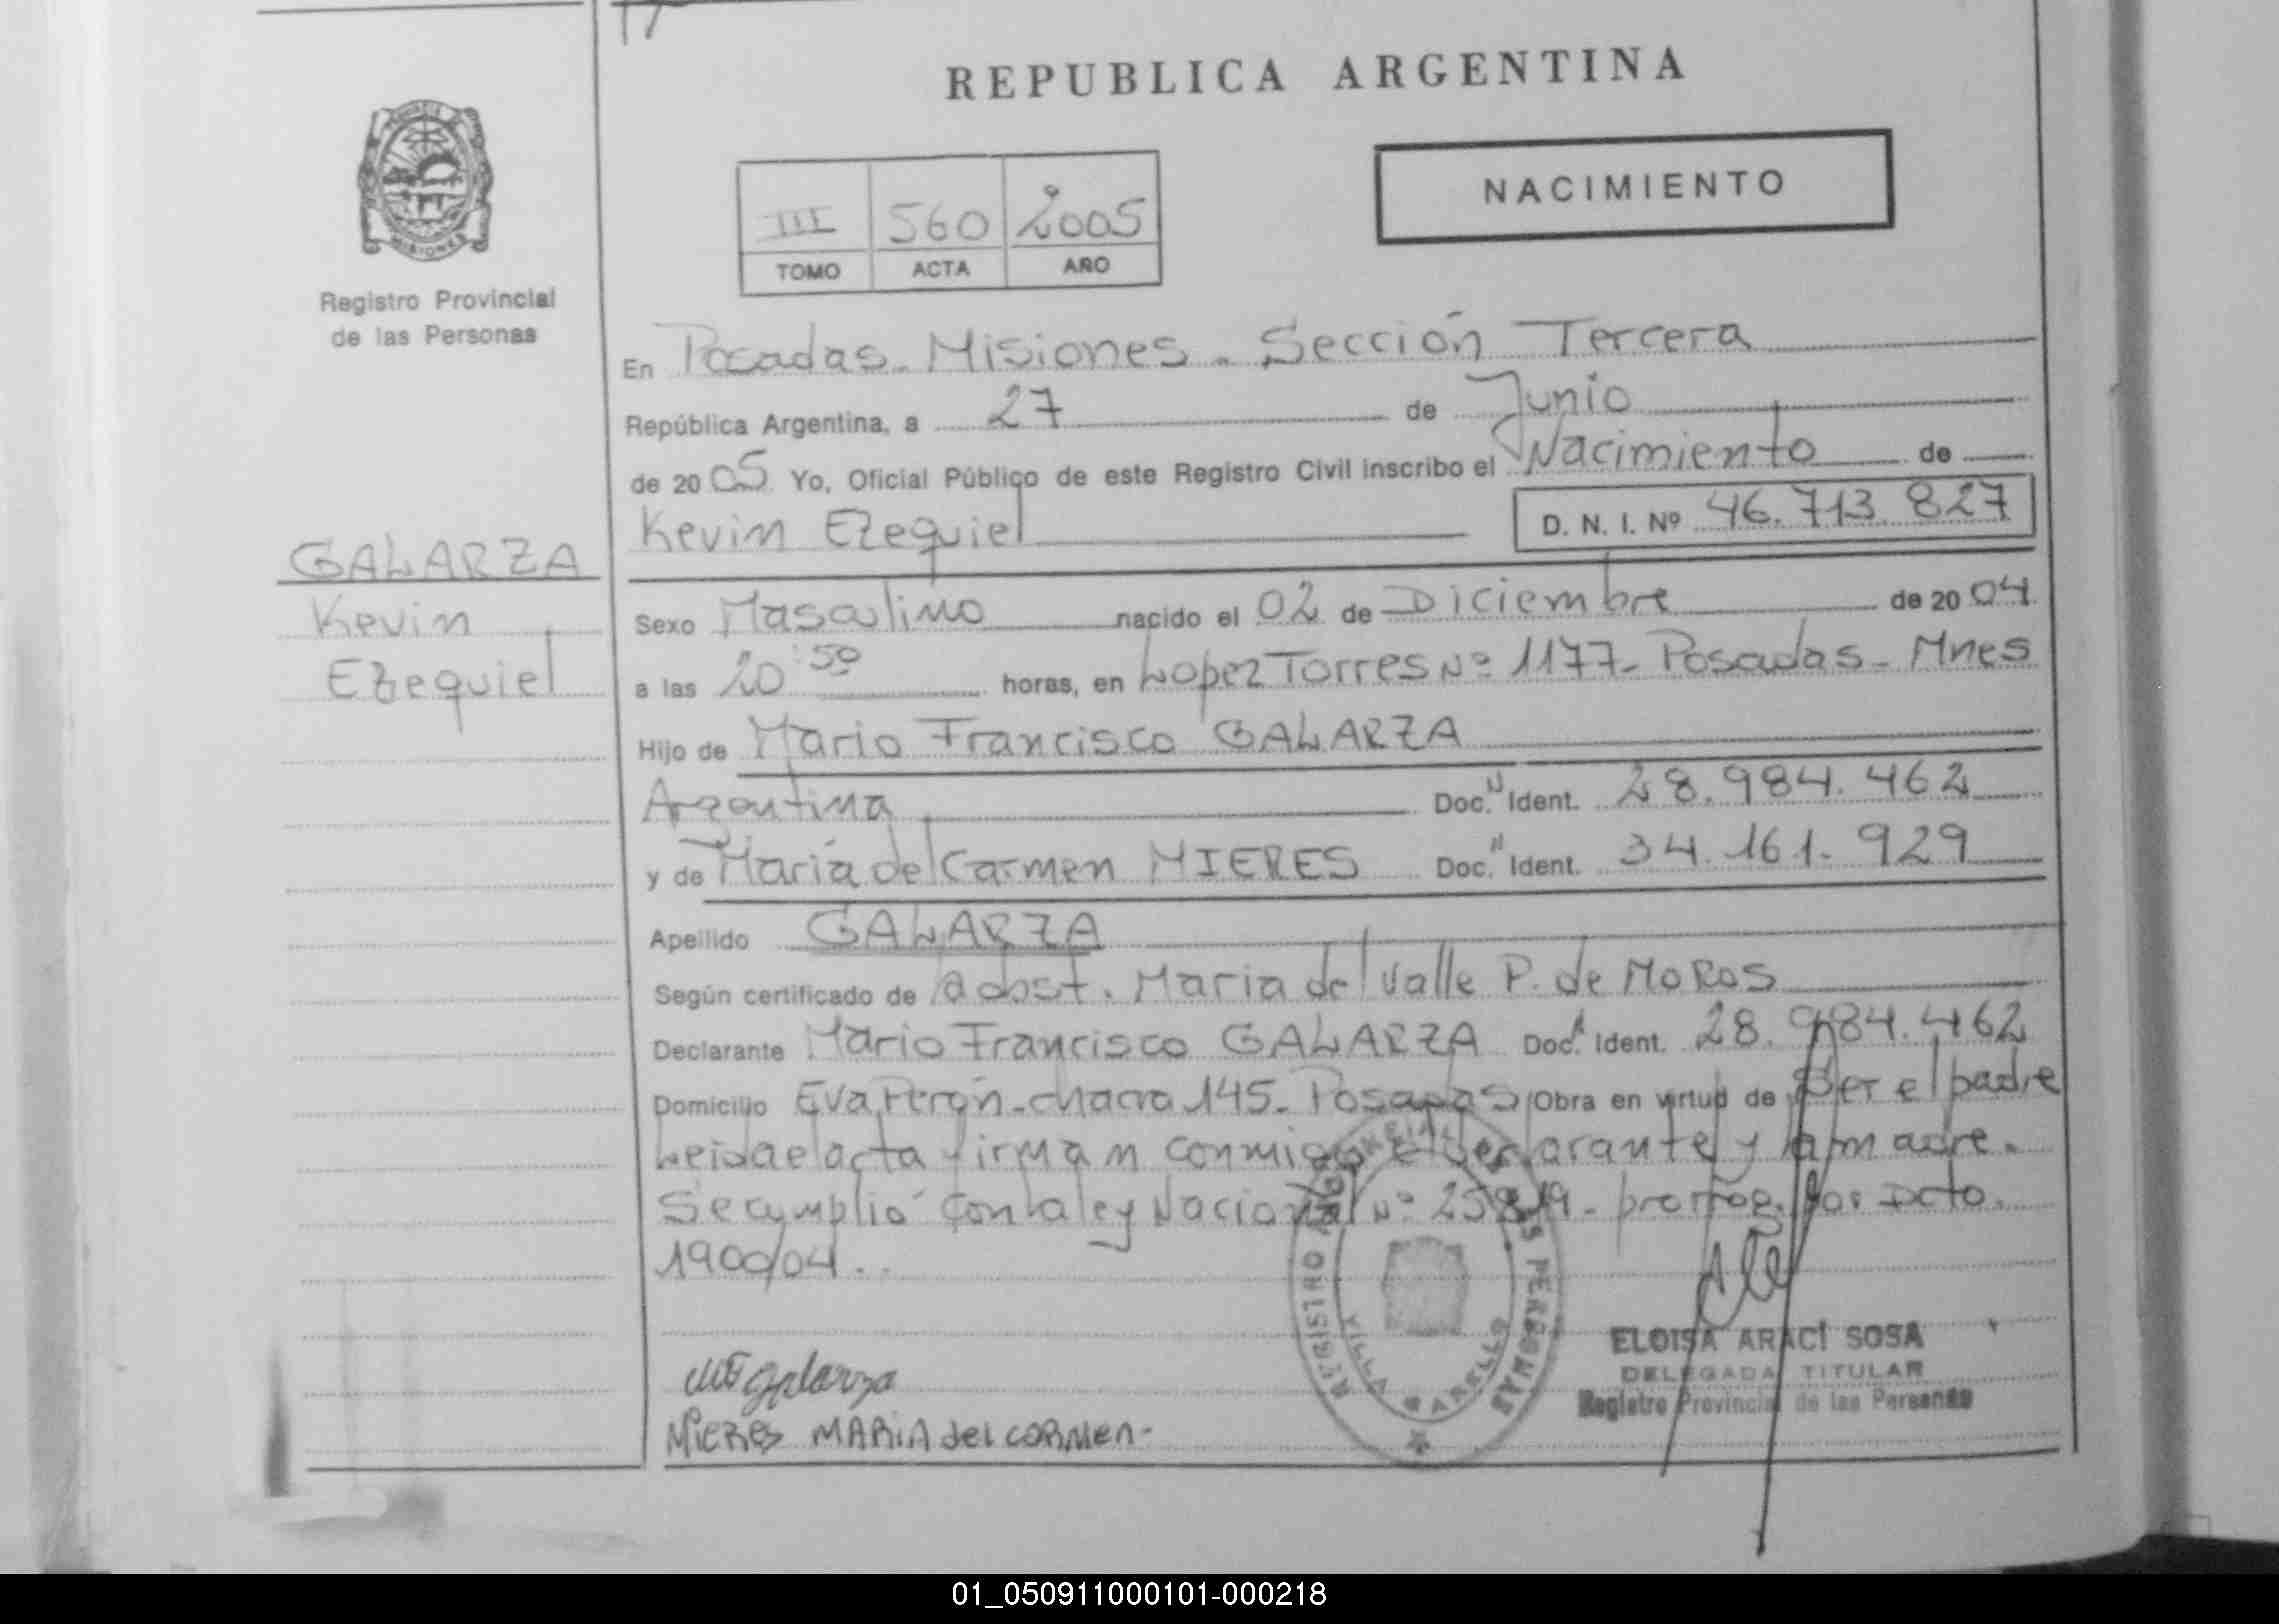 REPUBLICA ARGENTINA
PROVINCIA DE
MISIONES
Registro Provincial
de las Personas
NACIMIENTO
III 560 2005
TOMO ACTA AÑO
En Posadas - Misiones - Sección Tercera
República Argentina, a 27 de Junio
de 2005 Yo, Oficial Público de este Registro Civil inscribo el Nacimiento de
Kevin Ezequiel D. N. I. Nº 46.713.827
GALARZA
Kevin
Ezequiel
Sexo Masculino nacido el 02 de Diciembre de 2004
a las 20:50 horas, en Lopez Torres Nº 1177 - Posadas - Mnes
Hijo de Mario Francisco GALARZA
Argentina Doc. Ident. 28.984.462
y de María del Carmen MIERES Doc. Ident. 34.161.929
Apellido GALARZA
Según certificado de la obst. Maria del Valle P. de MOROS
Declarante Mario Francisco GALARZA Doc. Ident. 28.984.462
Domicilio Eva Perón - chacra 145 - Posadas Obra en virtud de ser el padre
Leida el acta firman conmigo el declarante y la madre.
Se cumplió con la ley Nacional Nº 25819 - prorrog. por Dcto.
1900/04..
REGISTRO PROVINCIAL DE LAS PERSONAS
VILLA SARELLO
Galarza
MIERES MARIA del CARMEN -
ELOISA ARACI SOSA
DELEGADA TITULAR
Registro Provincial de las Personas
01_050911000101-000218